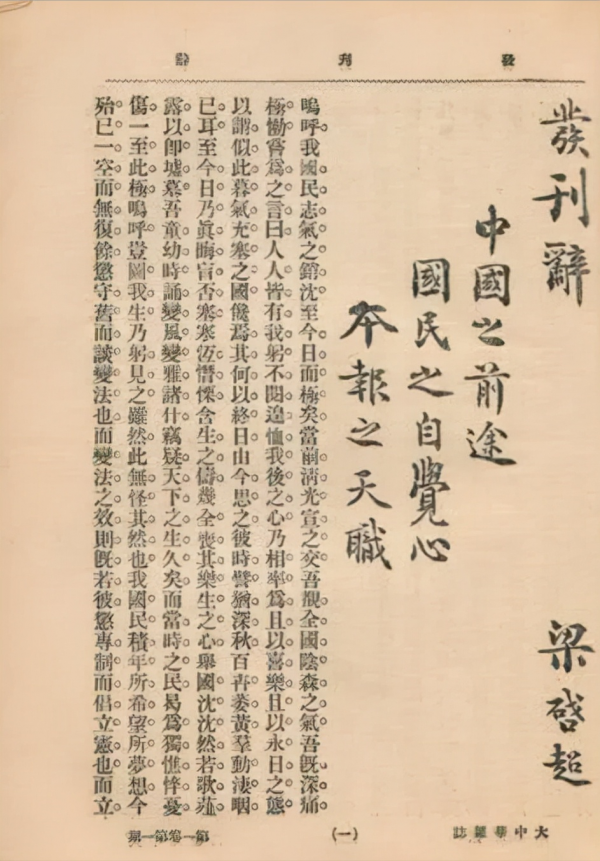 發刊辭
發刊辭
梁啓超
中國之前途
國民之自覺心
本報之天職
嗚呼我國民志氣之銷沈至今日而極矣當前淸光宣之交吾觀全國陰森之氣吾旣深痛
極慟嘗爲之言曰人人皆有我躬不閱遑恤我後之心乃相率爲且以喜樂且以永日之態
以謂似此暮氣充塞之國儳焉其何以終日由今思之彼時譬猶深秋百卉萎黃羣動淒咽
已耳至今日乃眞晦盲否塞寒沍憯慄含生之儔幾全喪其樂生之心舉國沈沈然若歌薤
露以卽墟墓吾童幼時誦變風變雅諸什竊疑天下之生久矣而當時之民曷爲獨憔悴憂
傷一至此極嗚呼豈圖我生乃躬見之雖然此無怪其然也我國民積年所希望所夢想今
殆已一空而無復餘懲守舊而談變法也而變法之效則旣若彼懲專制而倡立憲也而立
大中華雜誌
(一)
第一卷第一期